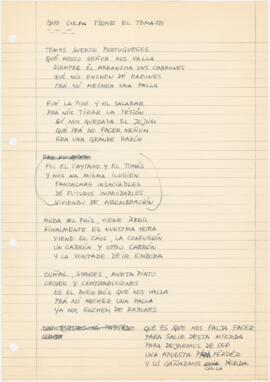 QUE CULPA TIENE EL TOMATE
TEMOS SUERTE PORTUGUESES
QUÉ NOSSO SEÑOR NOS VALLA
SIEMPRE EL ARRANCHA SUS CABRONES
QUE NOS ENCHEN DE RAZONES
PRÁ NO MECHER UNA PALLA
FUÉ LA PIDE Y EL SALAZAR
PRA NOS TIRAR LA TESIÓN
SÓ NOS QUEDABA EL JEJUM
QUE PRÁ NO FACER NEÑUM
ERA UNA GRANDE RAZÓN
FOI EL CAYTANO Y EL TOMÁS
Y NÓS NA MISMA ILUSIÓN
FANTASMAS INSACIABLES
DE FUTUROS IMPROBABLES
VIVIENDO DE ASSOMBRACIÓN
MUDA EL PAÍS, VIENE ABRIL
FINALMENTE ES NUESTRA HORA
VIENE EL CÁOS, LA CONFUSIÓN
UN CABRÓN Y OTRO CABRÓN
Y LA VONTADE DE IR EMBORA
CUÑAL, SOARES, MUSTA PINTO
CRISES Y CONTRADICIONES
ES EL BUEN DIÓS QUE NOS VALLA
PRÁ NO MECHER UNA PALLA
YA NOS ENCHEM DE RAZONES
QUE ES QUE NOS FALTA FACER
PARA SALIR DESTA MIERDA
PARA DEJARMOS DE SER
UNA APUESTA PRÁ PERDER
Y SÓ GAÑARMOS